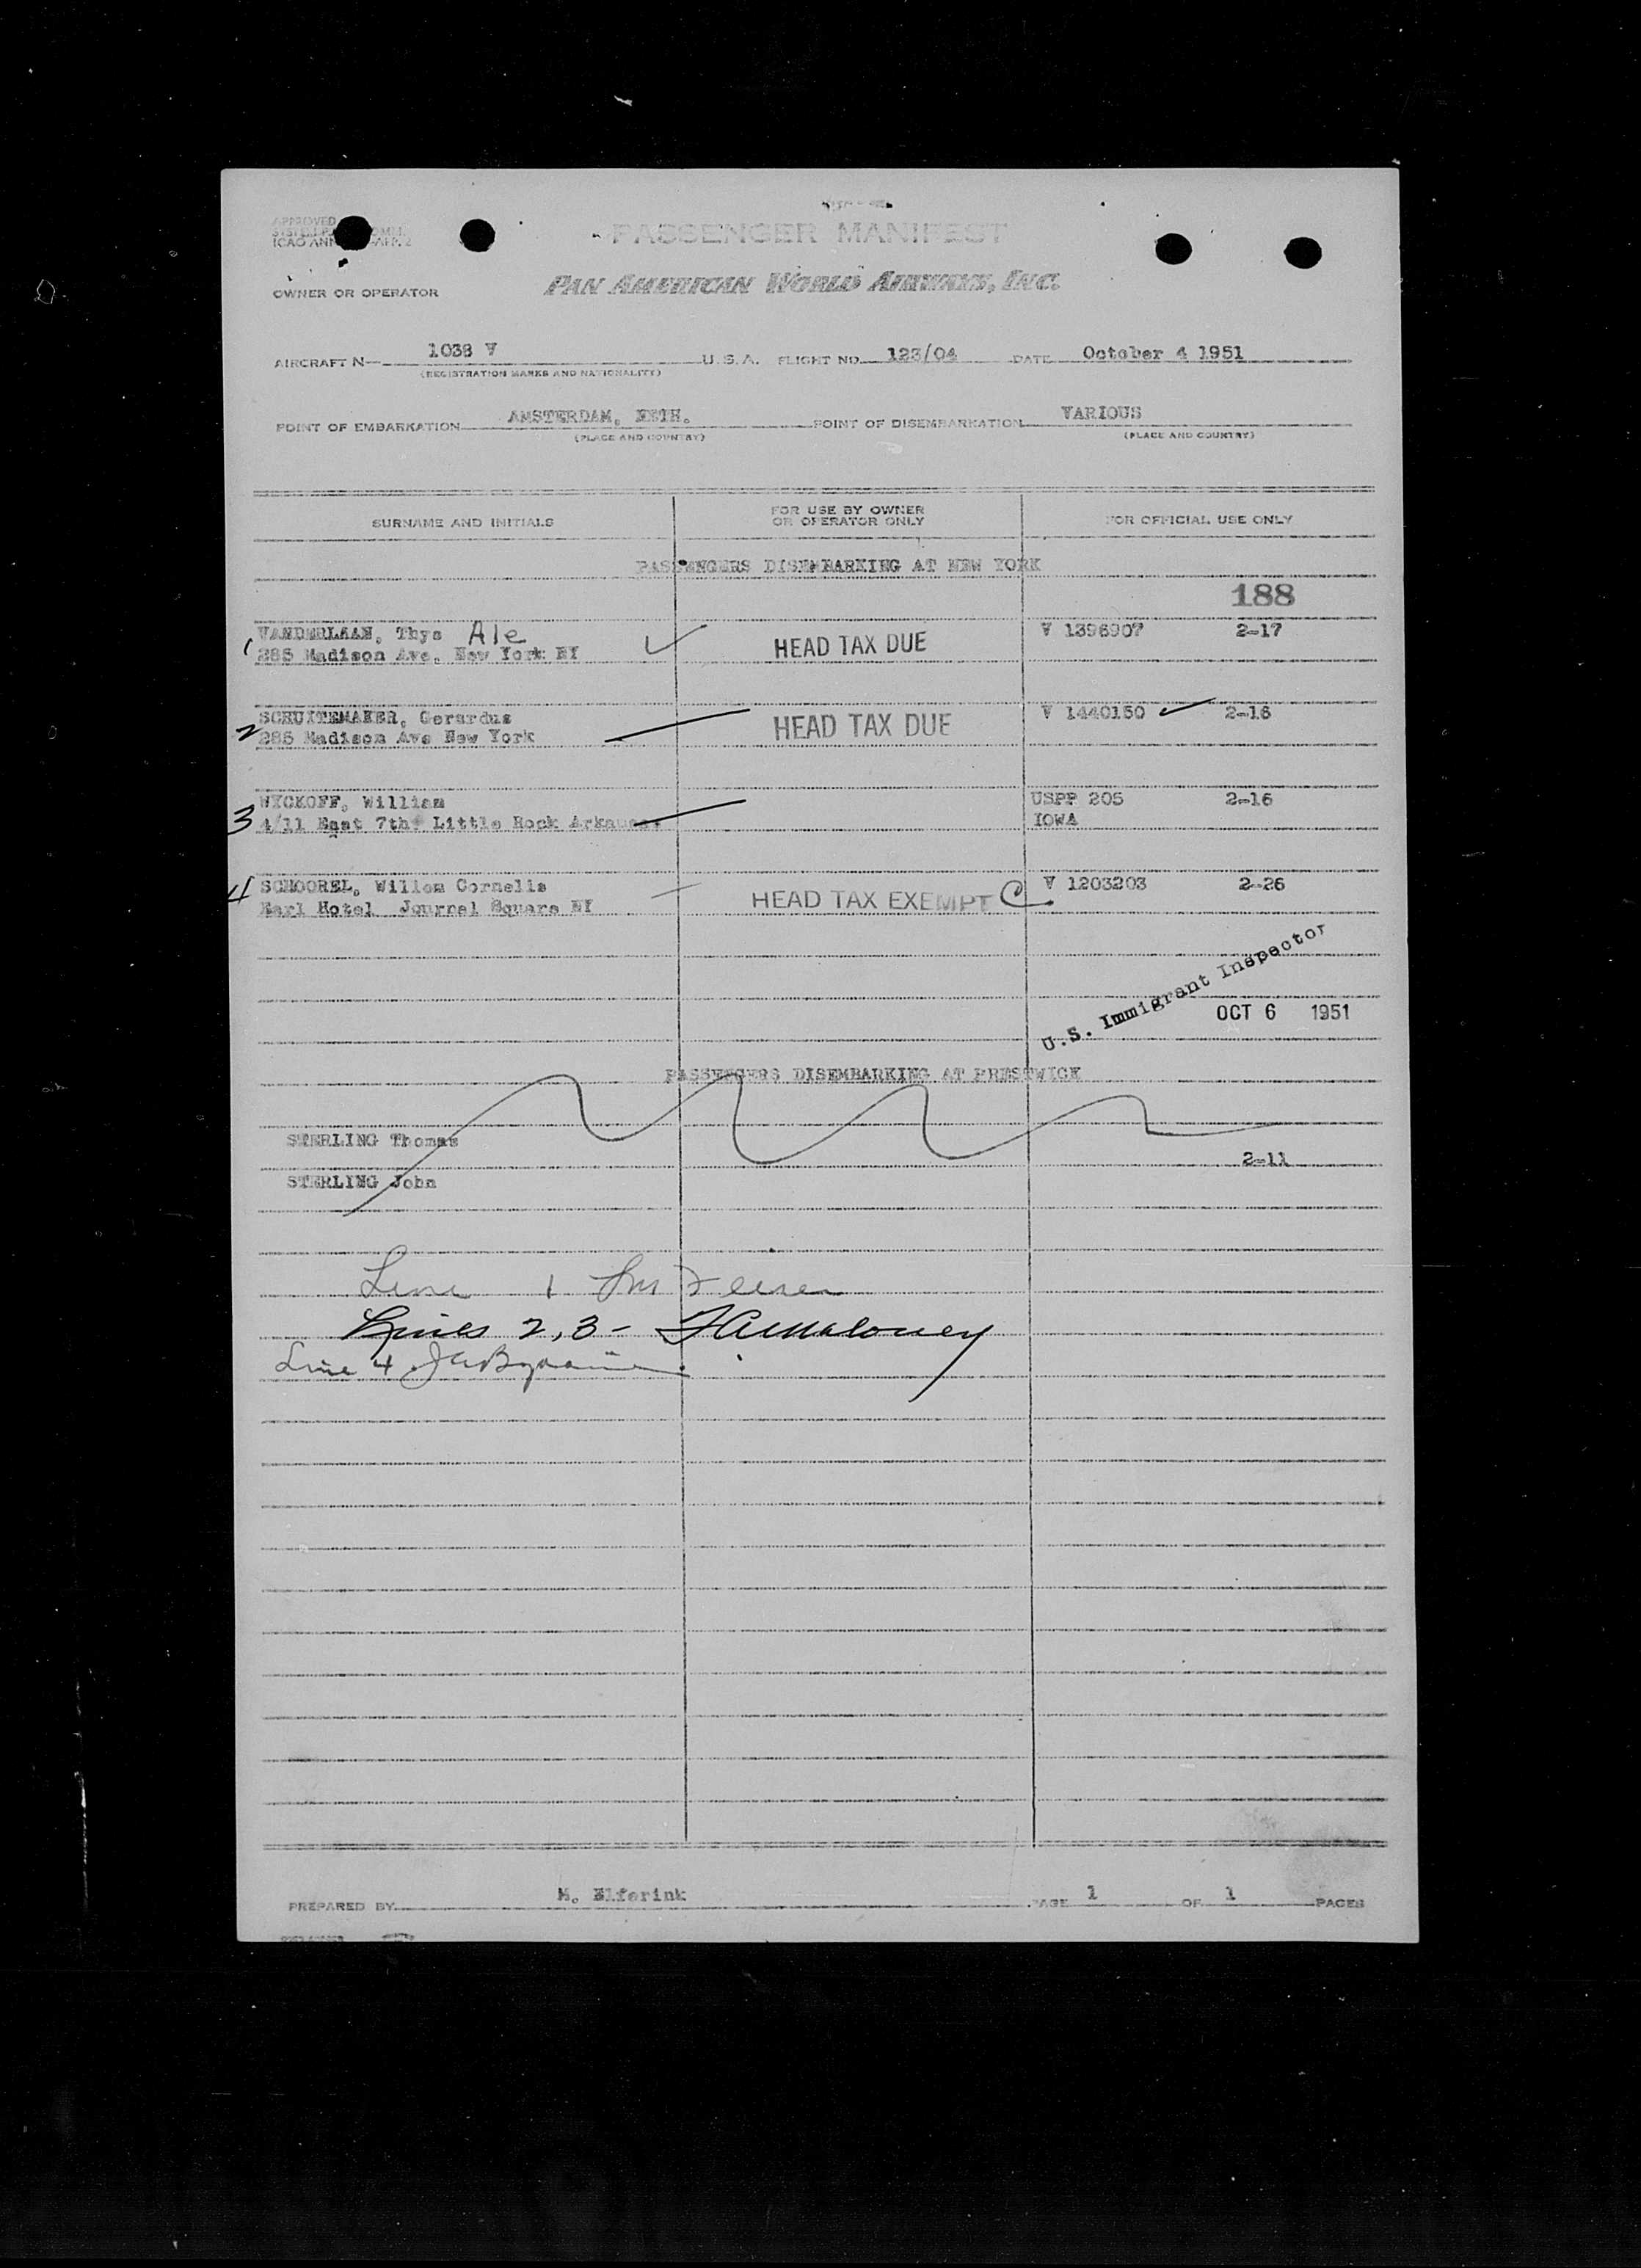 APPROVED
ICAO ANN
PASSENGER MANIFEST
OWNER OR OPERATOR PAN AMERICAN WORLD AIRWAYS, INC.
AIRCRAFT N— 1038 V U.S.A. FLIGHT NO. 123/04 DATE October 4 1951
(REGISTRATION MARKS AND NATIONALITY)
POINT OF EMBARKATION AMSTERDAM, NETH. POINT OF DISEMBARKATION VARIOUS
(PLACE AND COUNTRY) (PLACE AND COUNTRY)
SURNAME AND INITIALS FOR USE BY OWNER OR OPERATOR ONLY FOR OFFICIAL USE ONLY
PASSENGERS DISEMBARKING AT NEW YORK
188
1 VANDERLAAN, Thys Ale HEAD TAX DUE V 1396907 2-17
285 Madison Ave. New York NY
2 SCHUITEMAKER, Gerardus HEAD TAX DUE V 1440150 2-16
285 Madison Ave New York
3 WYCKOFF, William USPP 205 2-16
4/11 East 7th. Little Rock Arkansas IOWA
4 SCHOOREL, Willem Cornelis HEAD TAX EXEMPT C V 1203203 2-26
Earl Hotel Journal Square NY
U.S. Immigrant Inspector
OCT 6 1951
PASSENGERS DISEMBARKING AT PRESTWICK
STERLING Thomas
2-11
STERLING John
Line 1
Lines 2, 3 - Maloney
Line 4
PREPARED BY M. Elferink PAGE 1 OF 1 PAGES